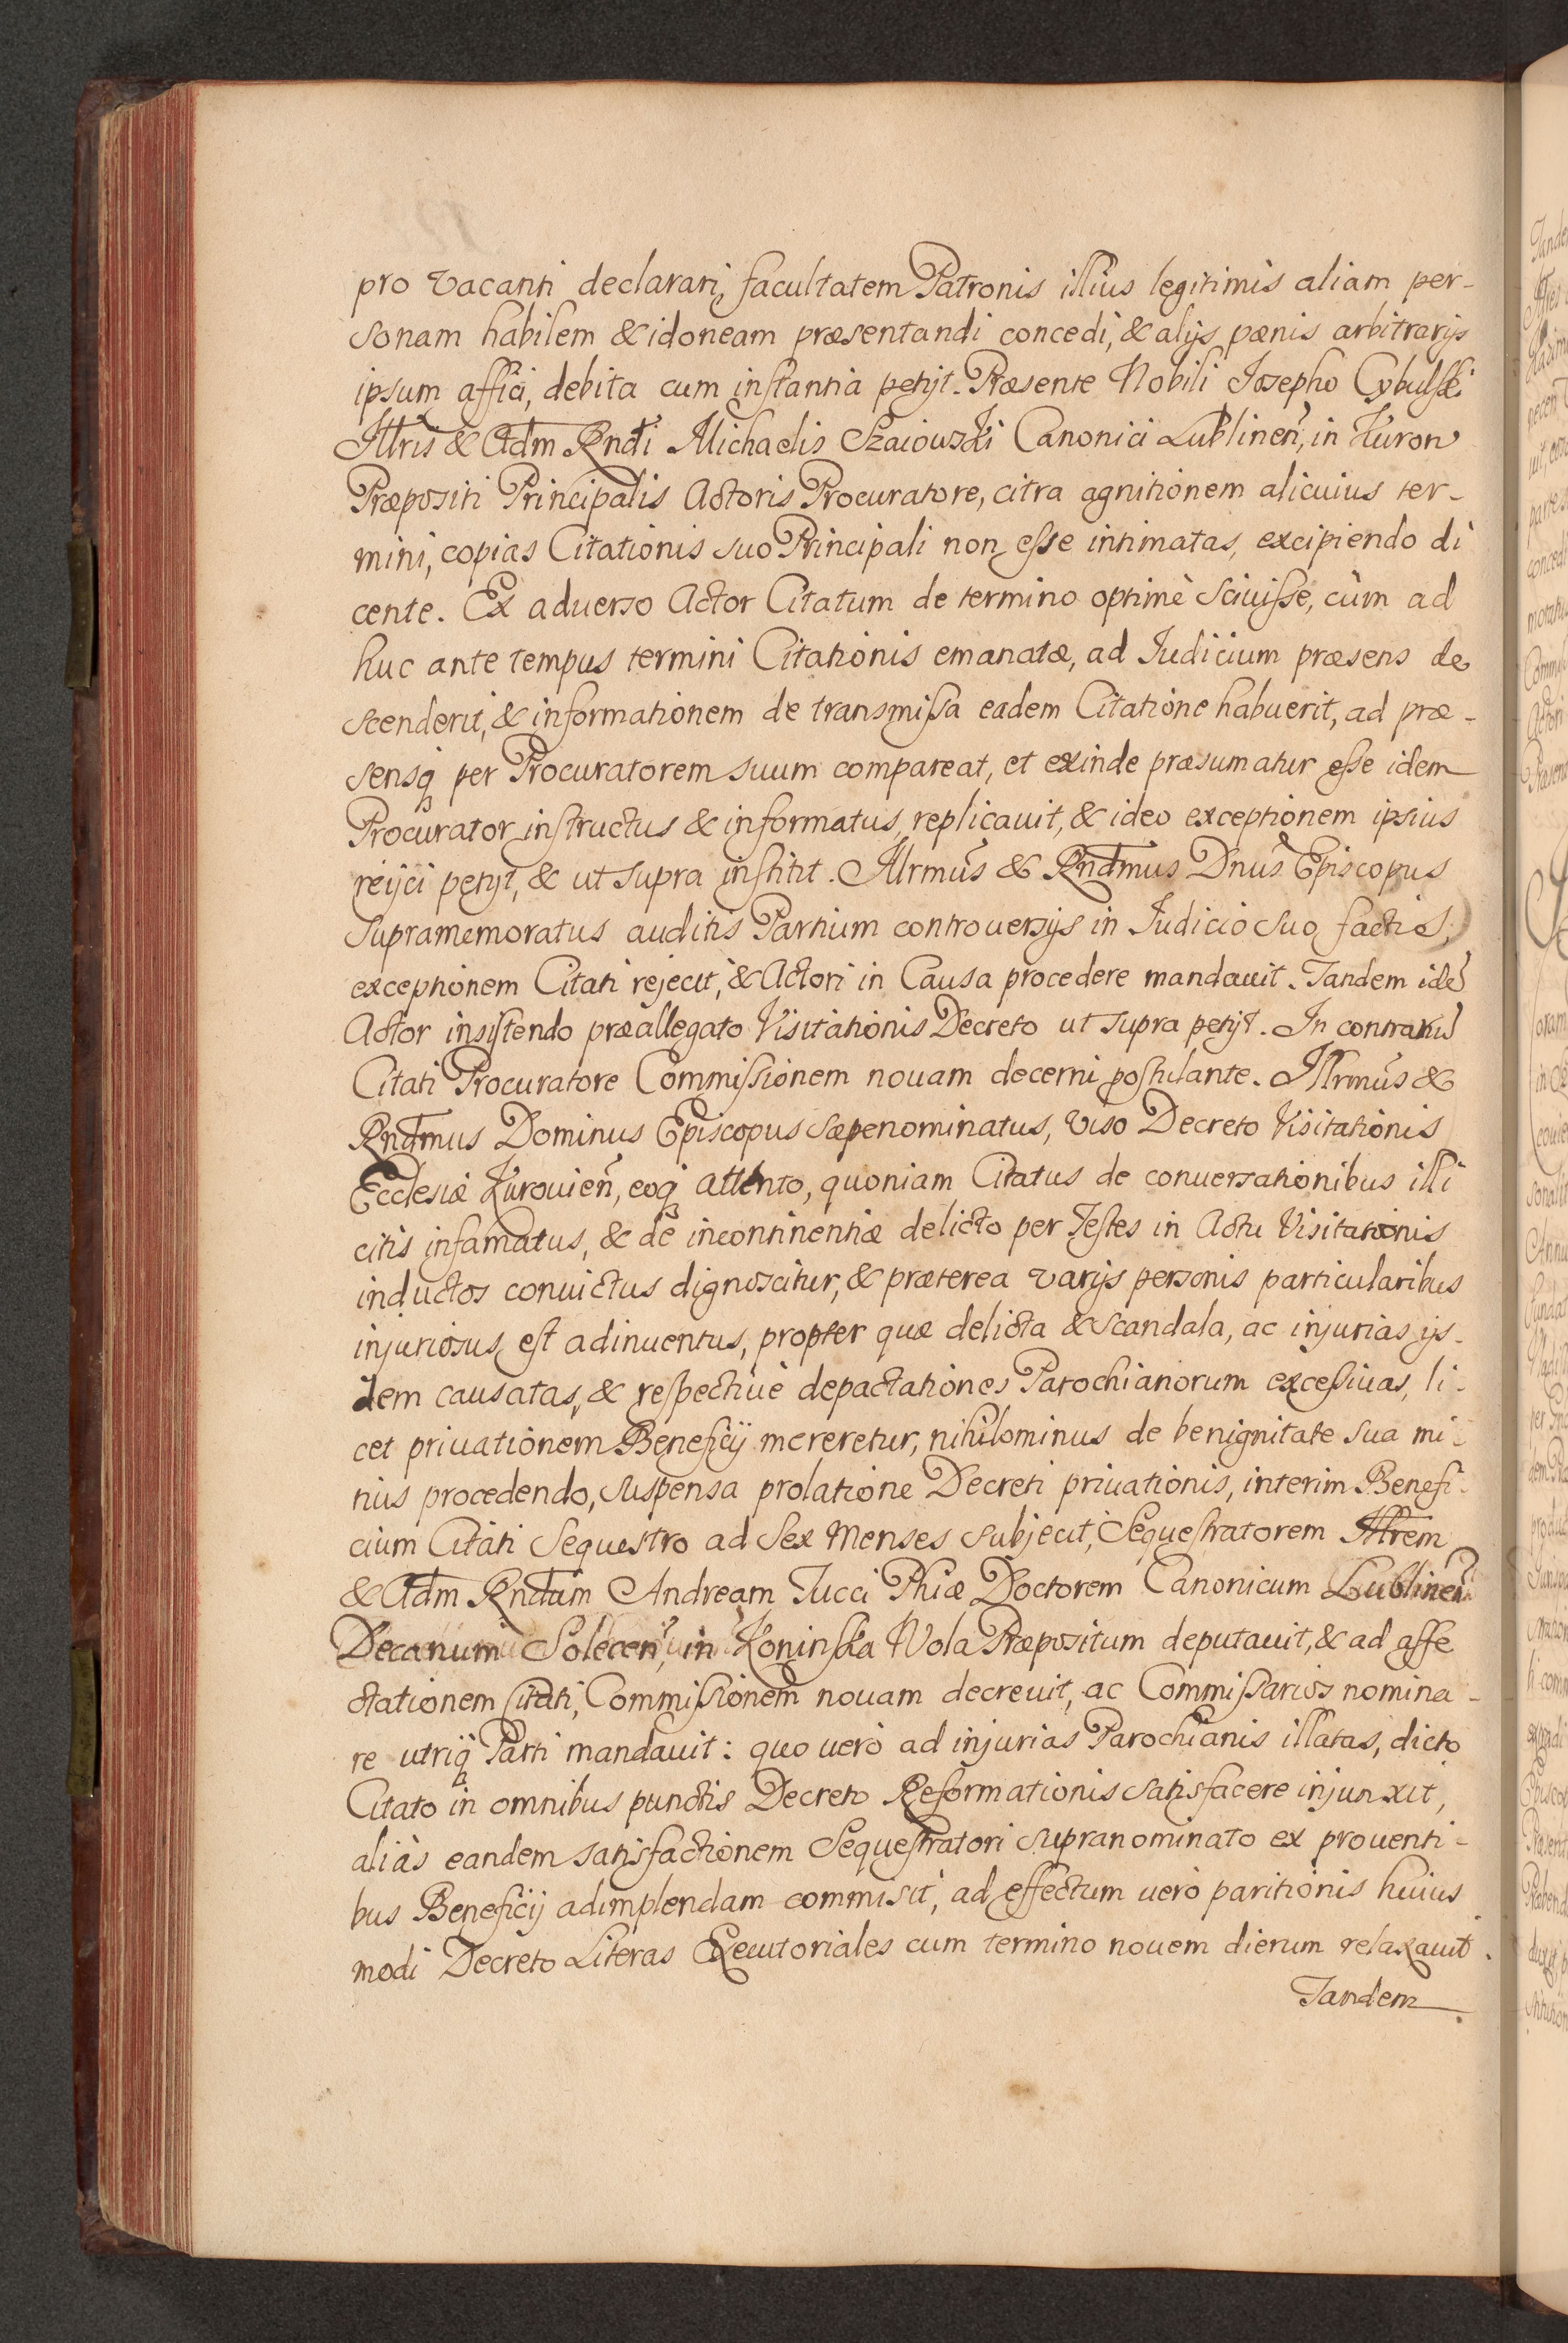 pro vacanti declarari, facultatem Patronis illius legitimis aliam per-
sonam habilem & idoneam præsentandi concedi, & alijs pœnis arbitrarijs
ipsum affici, debita cum instantia petijt. Præsente Nobili Josepho Cybulski
Illris & Adm Rndi Michaelis Szaiowski Canonici Lublinen̄, in Kurow
Præpositi Principalis Actoris Procuratore, citra agnitionem alicuius ter-
mini, copias Citationis suo Principali non esse intimatas, excipiendo di
cente. Ex aduerso Actor Citatum de termino optimè sciuisse, cùm ad
huc ante tempus termini Citationis emanatæ, ad Iudicium præsens de
scenderit, & informationem de transmissa eadem Citatione habuerit, ad præ-
sensq̃ per Procuratorem suum compareat, et exinde præsumatur esse idem
Procurator instructus & informatus, replicauit, & ideo exceptionem ipsius
reijci petijt, & ut supra institit. Illrmus & Rndmus Dnus Episcopus
supramemoratus auditis Partium controuersijs in Iudicio suo factis,
exceptionem Citati rejecit, & Actori in Causa procedere mandauit. Tandem idē
Actor insistendo præallegato Visitationis Decreto ut supra petijt. In contrariū
Citati Procuratore Commissionem nouam decerni postulante. Illrmus &
Rndmus Dominus Episcopus sæpenominatus, viso Decreto Visitationis
Ecclesiæ Kurouien̄, eoq̃ attento, quoniam Citatus de conuersationibus illi
citis infamatus, & de incontinentiæ delicto per Testes in Actu Visitationis
inductos conuictus dignoscitur, & præterea varijs personis particularibus
injuriosus est adinuentus, propter quæ delicta & scandala, ac injurias ijs-
dem causatas, & respectiuè depactationes Parochianorum excessiuas, li-
cet priuationem Beneficij mereretur, nihilominus de benignitate sua mi-
nus procedendo, suspensa prolatione Decreti priuationis, interim Benefi-
cium Citati Sequestro ad Sex Menses subjecit, Sequestratorem Illrem
& Adm Rndum Andream Tucci Phiæ Doctorem Canonicum Lublinen̄
Decanum Solecen̄, in Koninska Wola Præpositum deputauit, & ad affe
ctationem Citati, Commissionem nouam decreuit, ac Commissarios nomina-
re utriq̃ Parti mandauit: quo uerò ad injurias Parochianis illatas, dicto
Citato in omnibus punctis Decreto Reformationis satisfacere injunxit,
aliàs eandem satisfactionem Sequestratori supranominato ex prouenti-
bus Beneficij adimplendam commisit, ad effectum uerò paritionis huius
modi Decreto Literas Executoriales cum termino nouem dierum relaxauit.
Tandem